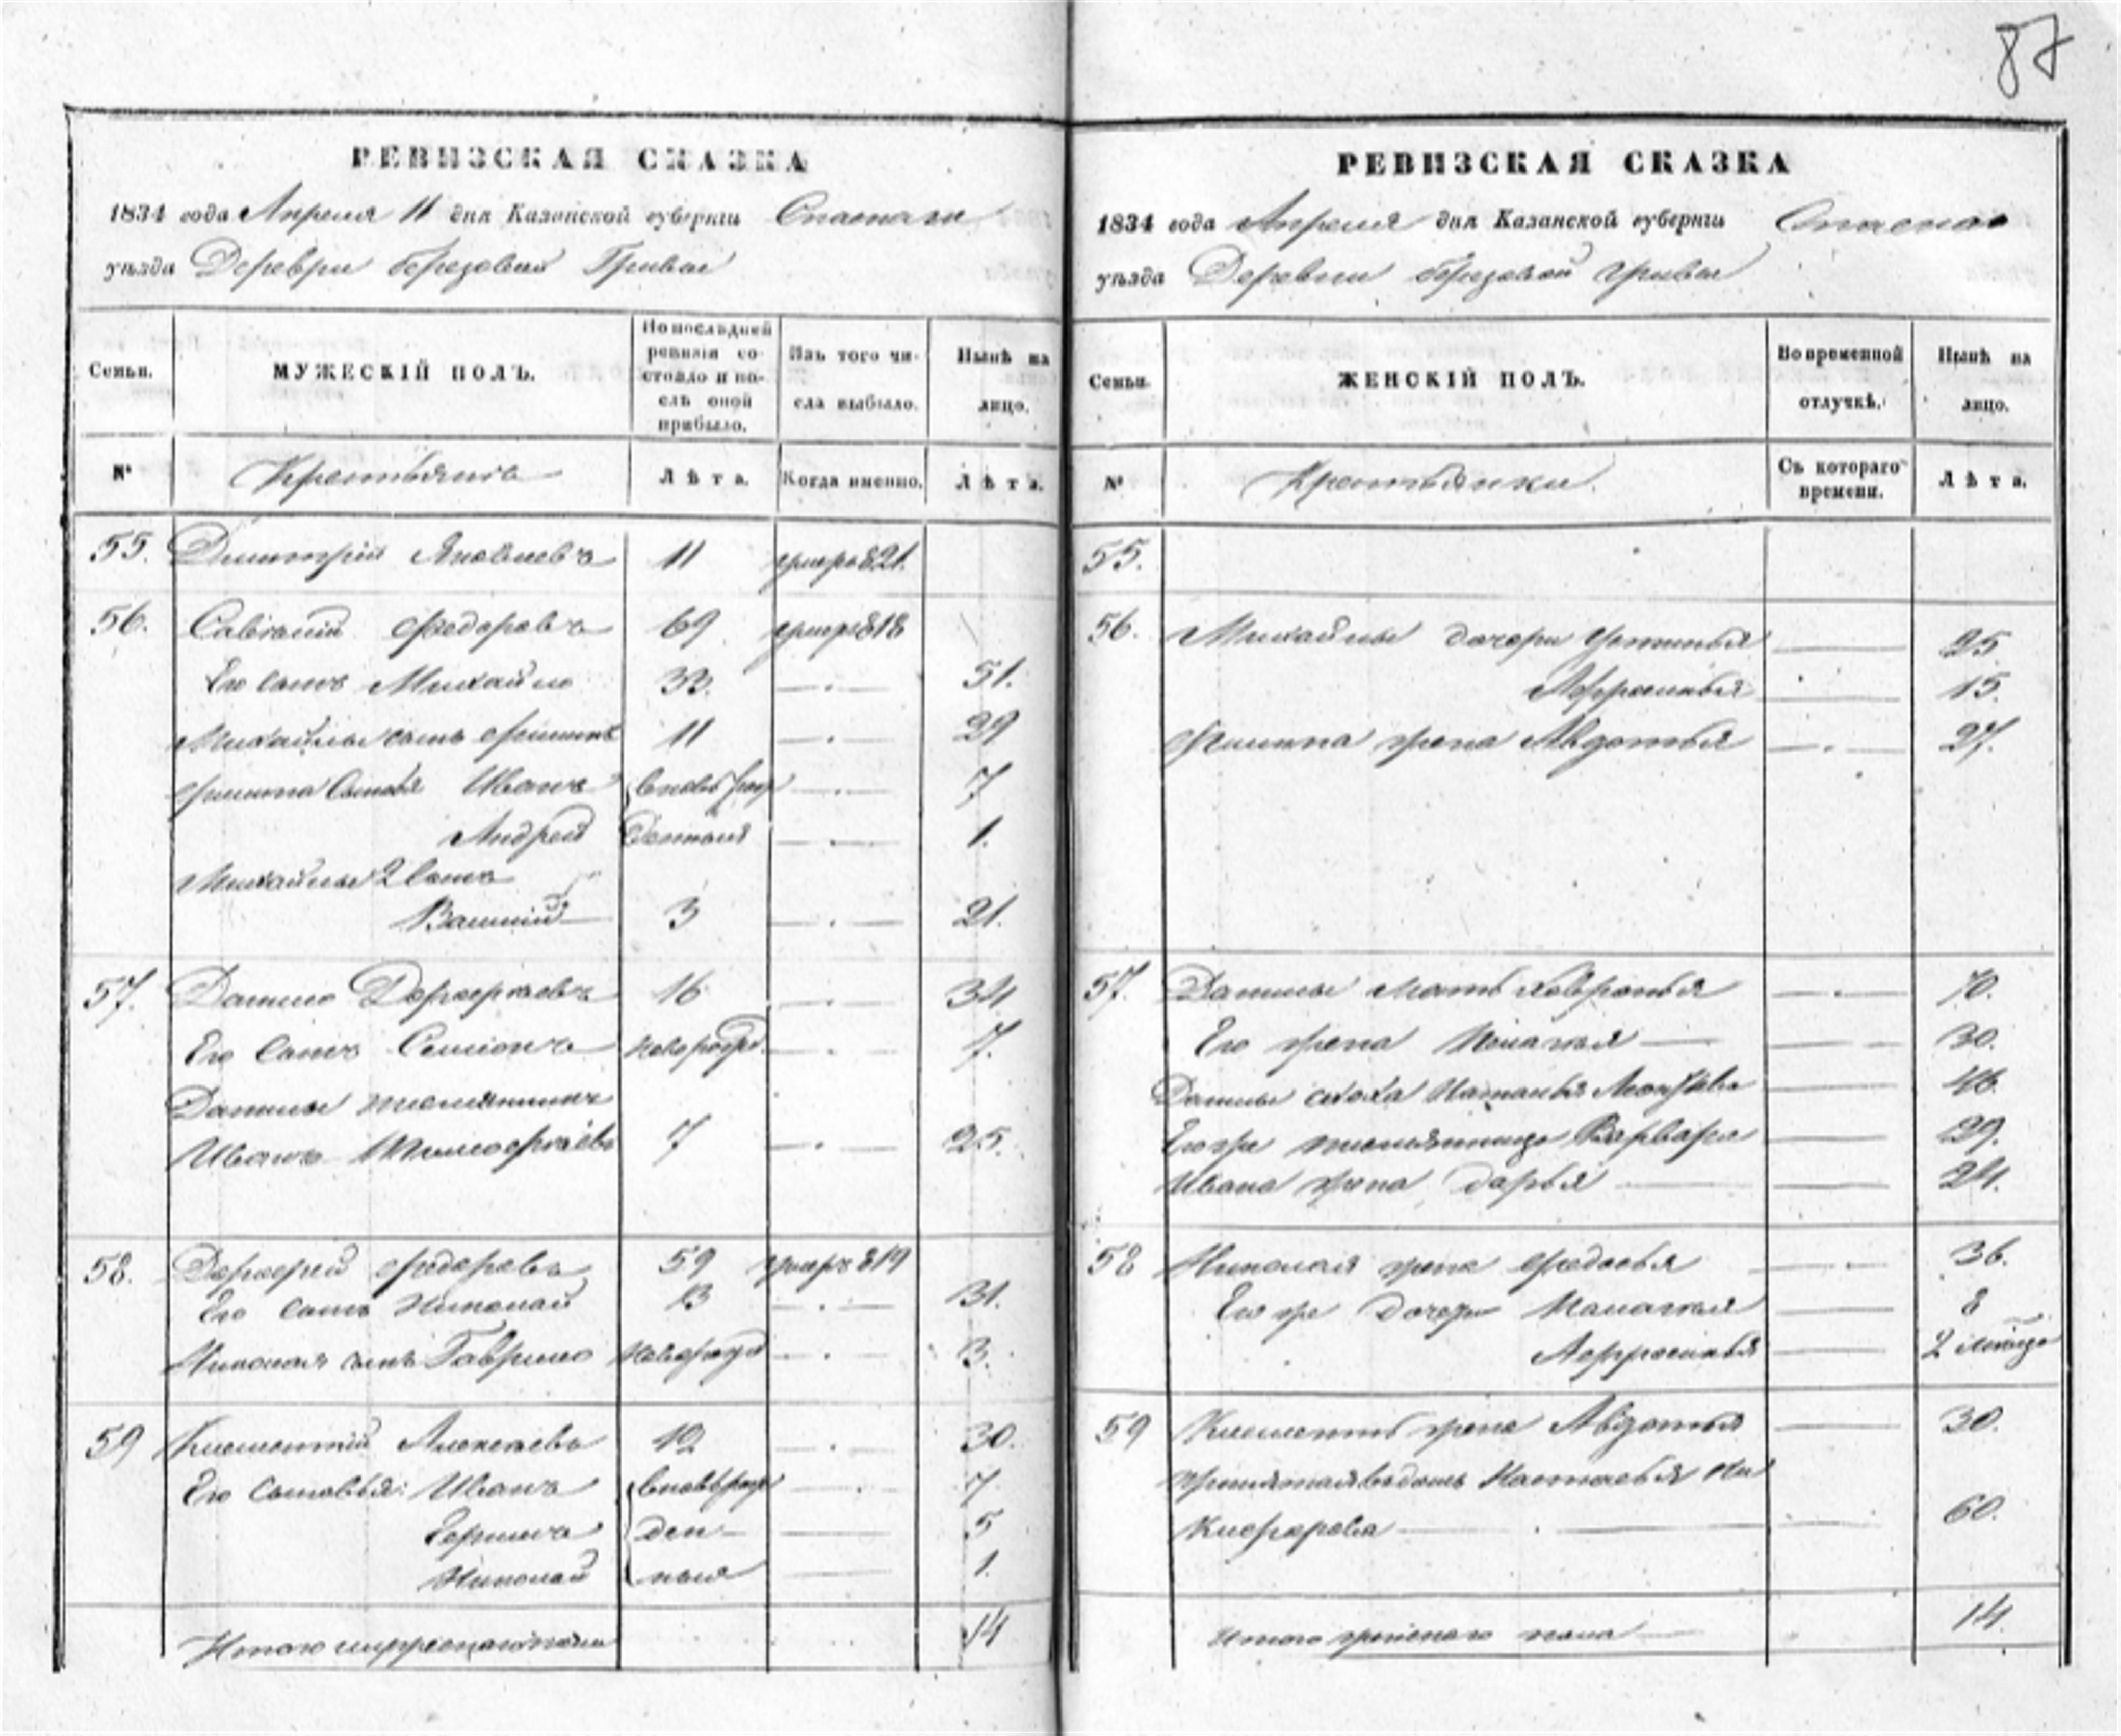 87
РЕВИЗСКАЯ СКАЗКА
1834 года Апреля 11 дня Казанской губерніи Спаскаго
уѣзда Деревни березовой Гривы
Семьи.
МУЖЕСКІЙ ПОЛЪ.
По последней ревизіи состояло и послѣ оной прибыло.
Изъ того числа выбыло.
Нынѣ на лицо.
№
Крестьяне
Лѣта.
Когда именно.
Лѣта.
55. Димитрій Яковлевъ 11 умеръ 821.
56. Савелій Федоровъ 69 умеръ 818
Его сынъ Михайло 33. 51.
Михайлы сынъ Филипъ 11 29
Филипа Сыновья Иванъ вновь рож 7
Андрей денныя 1.
Михайлы 2 сынъ
Василій 3 21.
57. Данило Дорофеевъ 16 34
Его Сынъ Семіонъ новорожд. 7.
Данилы племянникъ
Иванъ Тимофеевъ 7 25.
58. Дорофей Федоровъ 59 умеръ 819
Его сынъ Николай 13 31.
Николая сынъ Гаврило новорожд 3.
59 Климентій Алексеевъ 12 30.
Его Сыновья: Иванъ вновь рож 7.
ден 5
Николай ныя 1.
Итого мужеска пола 14
РЕВИЗСКАЯ СКАЗКА
1834 года Апреля дня Казанской губерніи Спаскаго
уѣзда Деревни березовой гривы
Семьи.
ЖЕНСКІЙ ПОЛЪ.
Во временной отлучкѣ.
Нынѣ на лицо.
№
Крестьянки.
Съ котораго времени.
Лѣта.
55.
56. Михайлы дочери Устинья 25
Афросинья 15.
Филипа жена Авдотья 27.
57. Данилы мать Хавронья 70.
Его жена Пелагея 30.
Данилы сноха Наталья 46.
Его же племянница Варвара 29.
Ивана жена Дарья 24.
58 Николая жена Федосья 36.
Его же дочери Палагея 8
Афросинья 2 месяца
59 Климента жена Авдотья 30.
Настасья Ни
кифорова 60.
Итого женского пола 14.